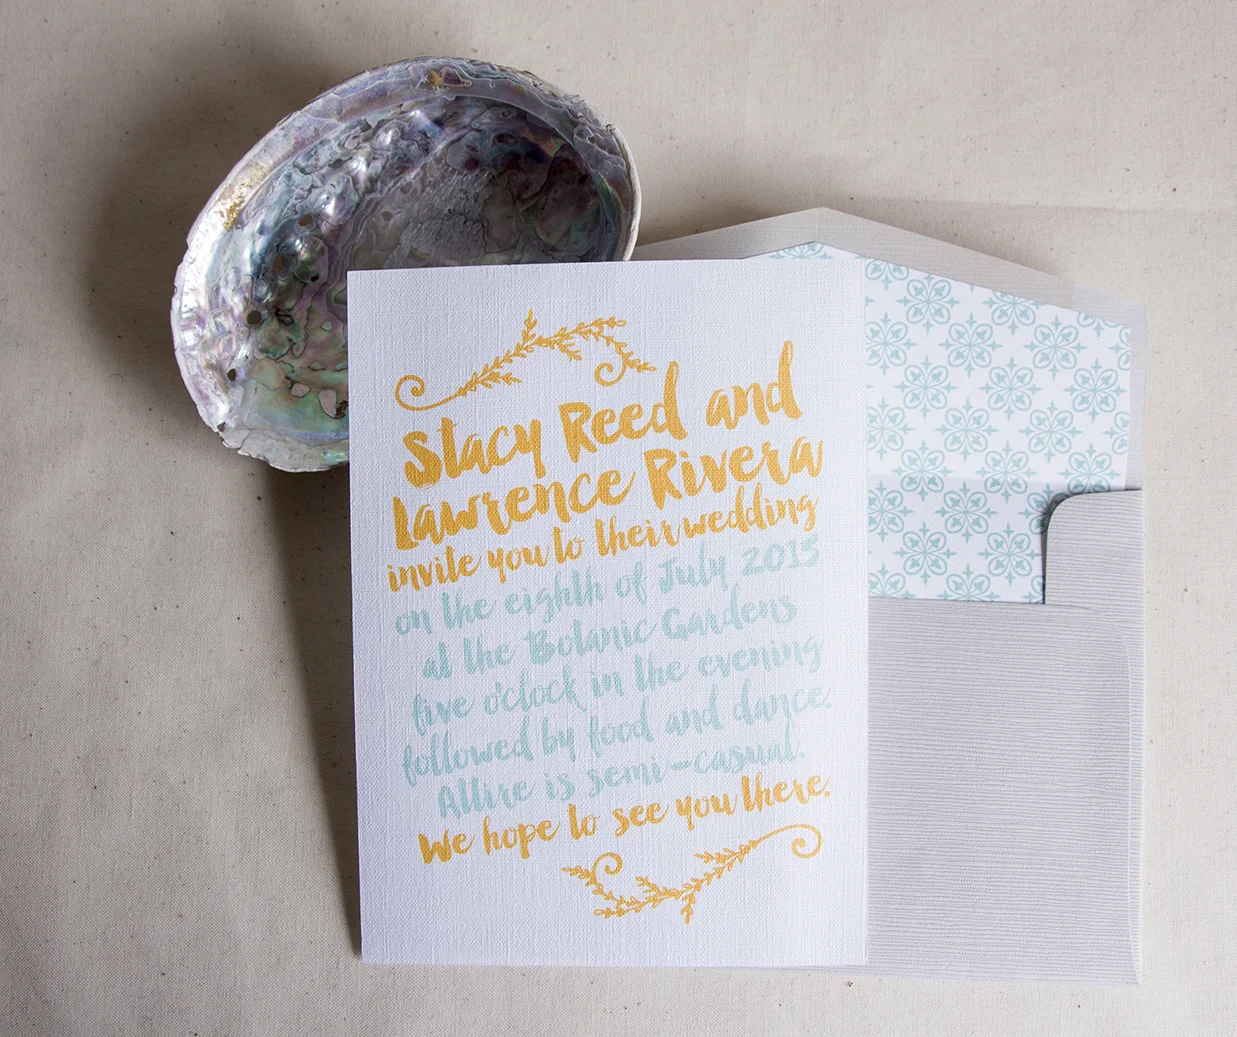 Stacy Reed and
Lawrence Rivera
invite you to their wedding
on the eighth of July 2015
at the Botanic Gardens
five o'clock in the evening
followed by food and dance.
Attire is semi-casual.
We hope to see you there.